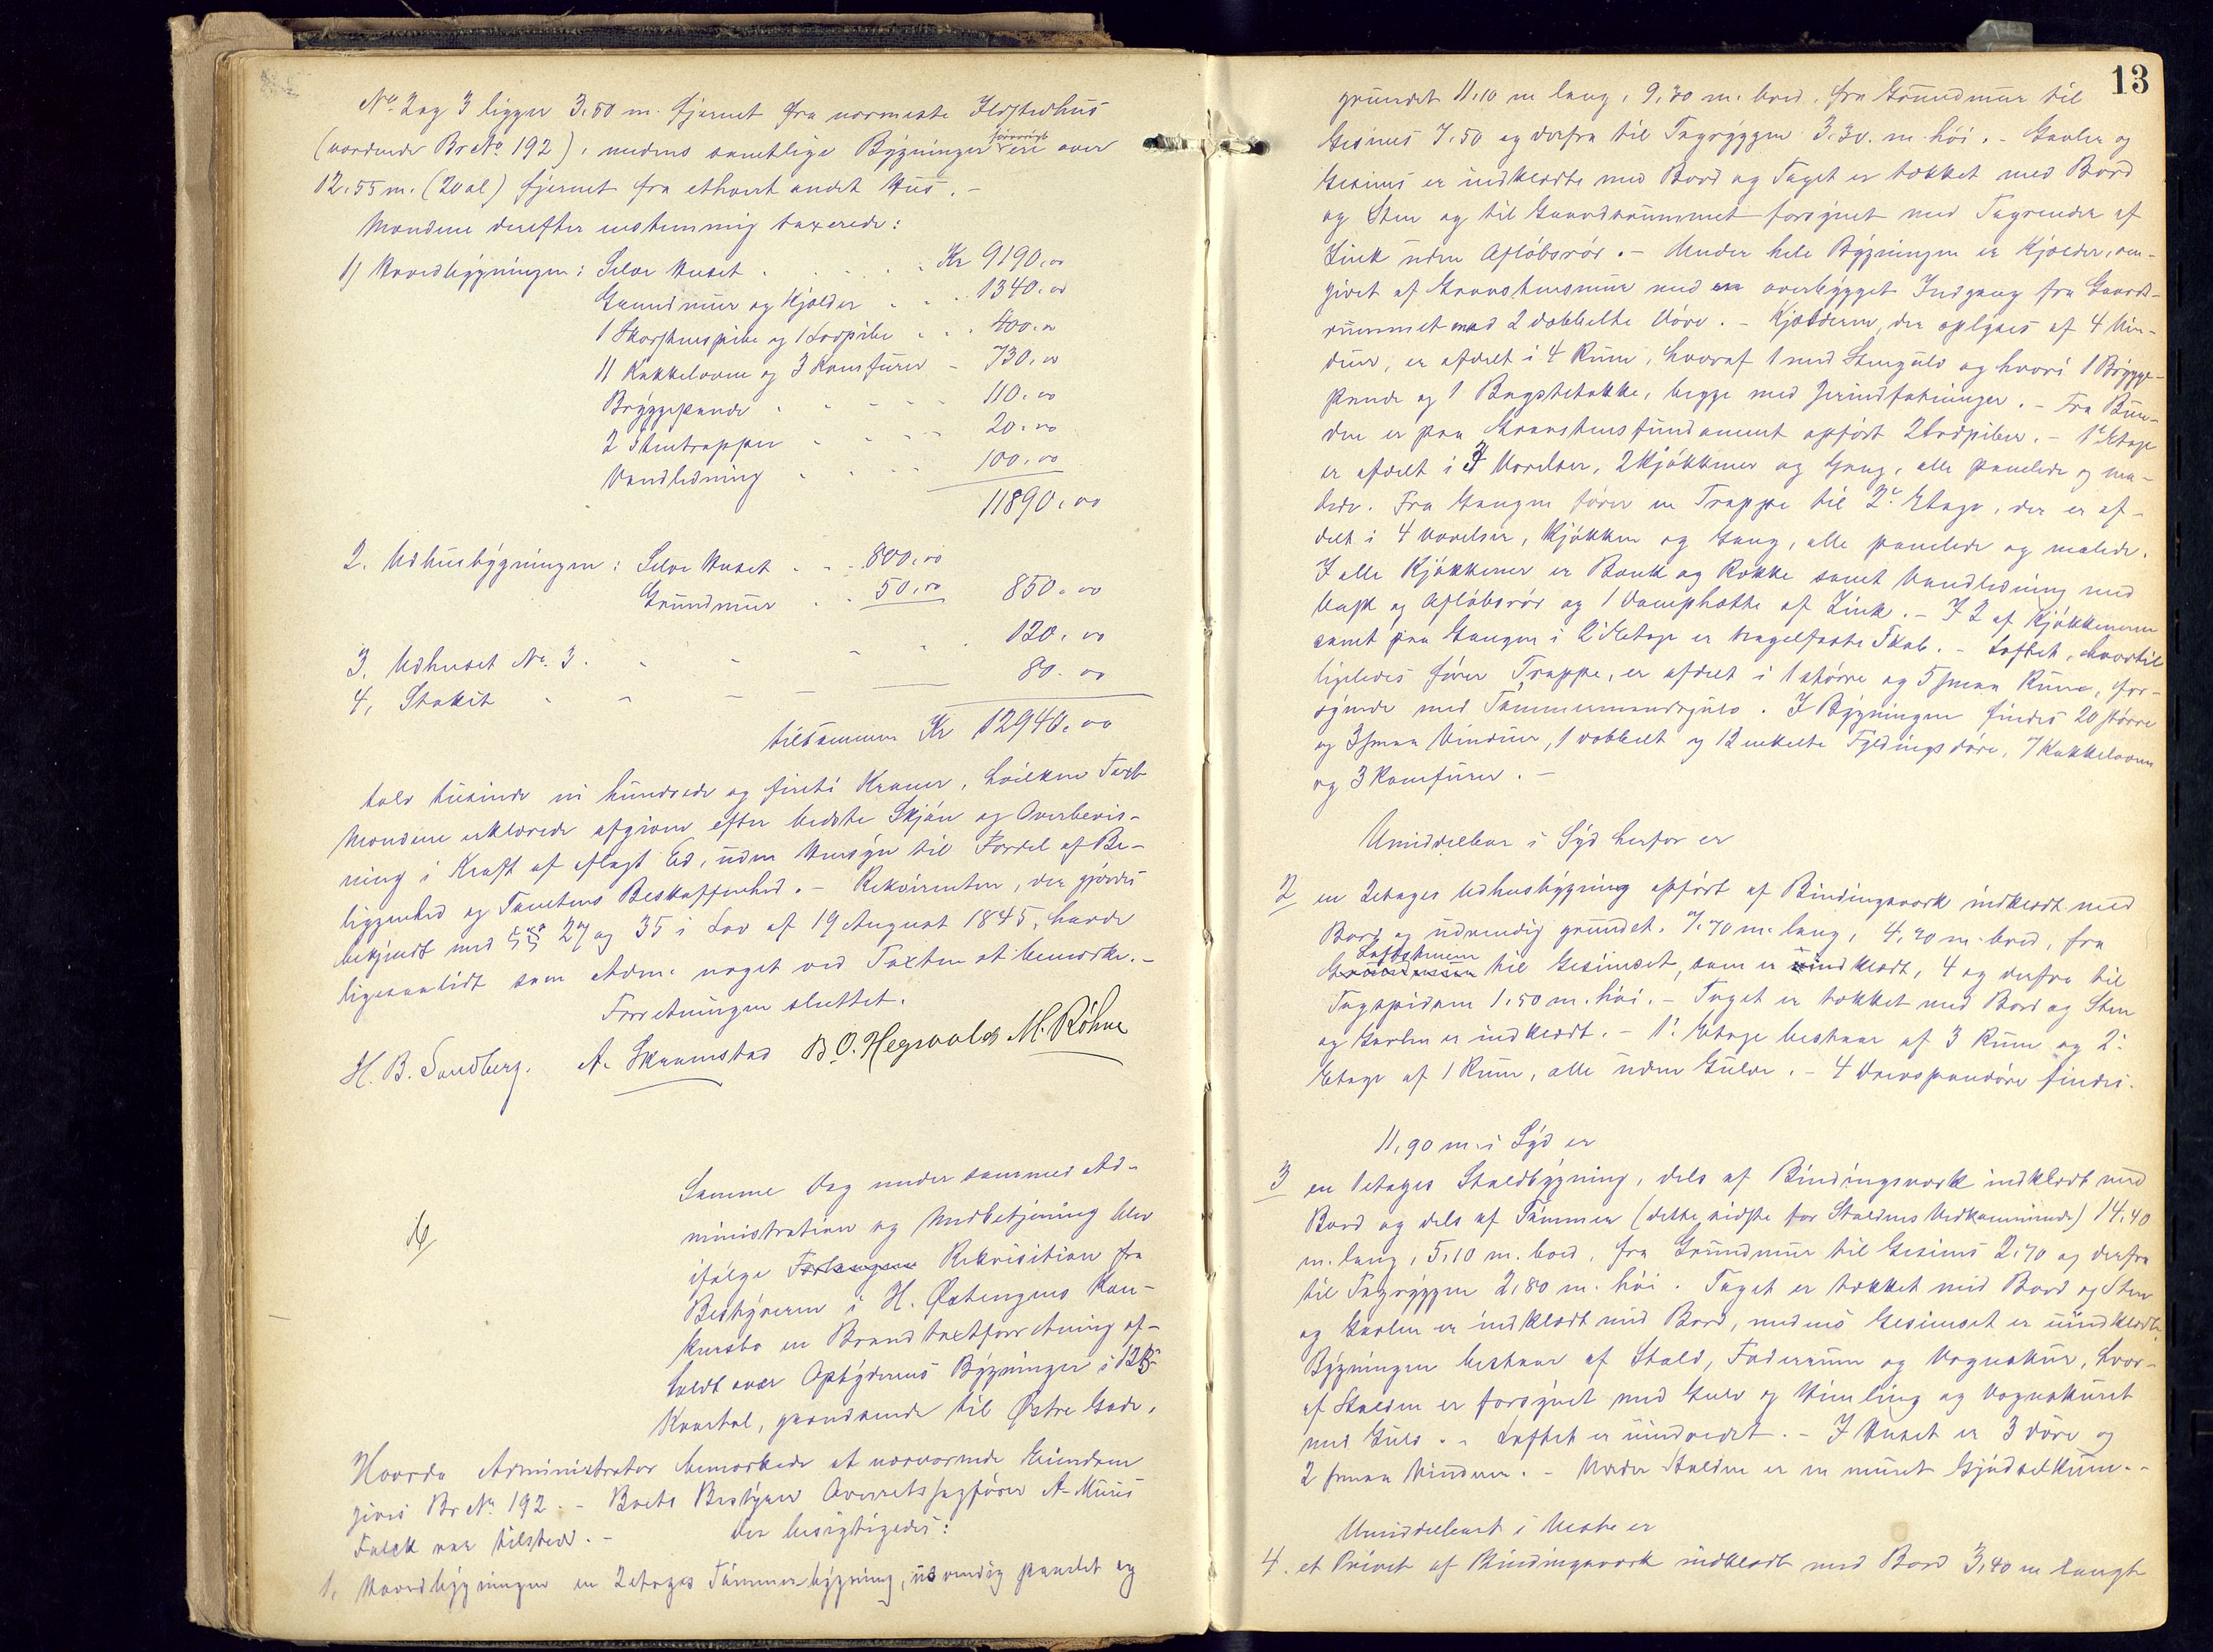 No. 2 og 3 ligger 3.50 m. fjernet fra nærmeste Ildstedhus
(værende Br. No 192), medens samtlige Bygninger forøvrigt ere over
12.55 m. (20 al) fjernet fra ethvert andet Hus. –
Mændene derefter enstemmig taxerede:
1) Hovedbygningen: Selve Huset . . . . . Kr 9190.00
Grundmur og Kjælder . . . 1340.00
1 Skorstenspibe og 1 Lodpibe . . . 400.00
11 Kakkelovne og 3 Komfurer – 730.00
Bryggepande . . . – – 110.00
2 Stentrapper . . . – 20.00
Vandledning . . . 100.00
11890.00
2. Udhusbygningen: Selve Huset . . . 800.00
Grundmur . . 50.00 850.00
3. Udhuset No. 3. . . . . . 120.00
4, Stakit . . – – 80.00
tilsammen Kr 12940.00
tolv tusinde ni hundrede og firti Kroner, hvilken Taxt
Mændene erklærede afgiven efter bedste Skjøn og Overbevis-
ning i Kraft af aflagt Ed, uden Hensyn til Fordel af Be-
liggenhed og Tomtens Beskaffenhed. – Rekvirenten, der gjordes
bekjendt med §§ 27 og 35 i Lov af 19 August 1845, havde
ligesaalidt som Adm. noget ved Taxten at bemærke. –
Forretningen sluttet.
H. B. Sandberg. A. Skramstad B. O. Hegsvold M. Röhne
Samme Dag under sammes Ad-
ministration og Medbetjening blev
ifølge Forlangen Rekvisition fra
Bestyreren i H. Østengens Kon-
kursbo en Brandtaxtforretning af-
holdt over Opbyderens Bygninger i 12te
Kvartal, grændsende til Østre Gade.
Hvorda Administrator bemærkede at nærværende Eiendom
gives Br. No. 192. – Boets Bestyrer Overretssagfører A. Muus
Falck var tilstede. – Der besigtigedes:
1. Hovedbygningen en 2etages Tømmerbygning, udvendig panelet og
13
grundet 11.10 m lang, 9.30 m. bred, fra Grundmur til
Gesims 7.50 og derfra til Tagryggen 3.30. m. høi. – Gavler og
Gesims er indklædte med Bord og Taget er tækket med Bord
og Sten og til Gaardsrummet forsynet med Tagrender af
Zink uden Afløbsrør. – Under hele Bygningen er Kjælder, om-
givet af Graastensmur med en overbygget Indgang fra Gaards-
rummet med 2 dobbelte Døre. – Kjælderen, der oplyses af 4 Vin-
duer, er afdelt i 4 Rum, hvoraf 1 med Stengulv og hvori 1 Brygge-
pande og 1 Bagstetakke, begge med Jernindfatninger. – Fra Bun-
den er paa Graastensfundament opført 2 Lodpiber. – 1e Etage
er afdelt i 3 Værelser, 2 Kjøkkener og Gang, alle panelede og ma-
lede. Fra Gangen fører en Trappe til 2e Etage, der er af-
delt i 4 Værelser, Kjøkken og Gang, alle panelede og malede.
I alle Kjøkkener er Bænk og Række samt Vandledning med
Vask og Afløbsrør og 1 Damphætte af Zink. – I 2 af Kjøkkenerne
samt paa Gangen i 2 Etage er nagelfaste Skab. – Loftet, hvortil
ligeledes fører Trappe, er afdelt i 1 større og 5 smaa Rum, for-
synede med Tømmermandsgulv. I Bygningen findes 20 større
og 3 smaa Vinduer, 1 dobbelt og 12 enkelte Fyldingsdøre, 7 Kakkelovne
og 3 Komfurer. –
Umiddelbar i Syd herfor er
2 en 2etages Udhusbygning opført af Bindingsværk indklædt med
Bord og udvendig grundet. 7.70 m. lang, 4.20 m. bred, fra
Grundmuren til Gesimset, som er uindklædt, 4 og derfra til
Tagspidsen 1.50 m. høi. – Taget er tækket med Bord og Sten
og Gavlen er indklædt. – 1. Etage bestaar af 3 Rum og 2.
Etage af 1 Rum, alle uden Gulve. – 4 Døre findes.
11,90 m. i Syd er
3 en 1etages Staldbygning, dels af Bindingsværk indklædt med
Bord og dels af Tømmer (dette sidste for Staldens Vedkommende) 14.40
m. lang, 5.10 m. bred, fra Grundmur til Gesims 2.70 og derfra
til Tagryggen 2.80 m. høi. Taget er tækket med Bord og Sten
og Gavlen er indklædt med Bord, medens Gesimset er uindklædt.
Bygningen bestaar af Stald, Foderrum og Vognskur, hvor-
af Stalden er forsynet med Gulv og Himling og Vognskuret
med Gulv. – Loftet er uindredet. – I Huset er 3 Døre og
2 smaa Vinduer. – Under Stalden er en muret Gjødselkum. –
Umiddelbart i Vestre er
4. et Privet af Bindingsværk indklædt med Bord 3.40 m langt